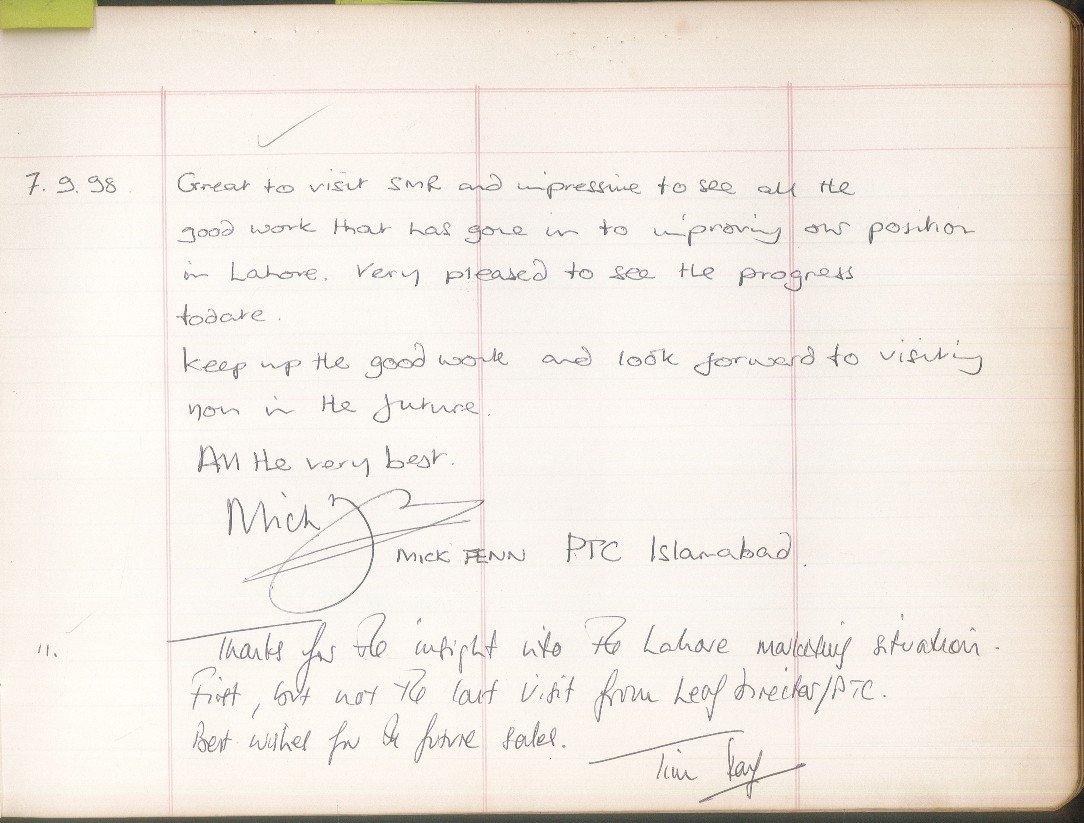 7.9.98. Great to visit SMR and impressive to see all the
good work that has gone in to improving our position
in Lahore. Very pleased to see the progress
todate.
Keep up the good work and look forward to visiting
you in the future.
All the very best.
Mick
MICK FENN PTC Islamabad.
". Thanks for the insight into the Lahore marketing situation.
First, but not the last visit from Leaf Director/PTC.
Best wishes for the future sales.
Tim